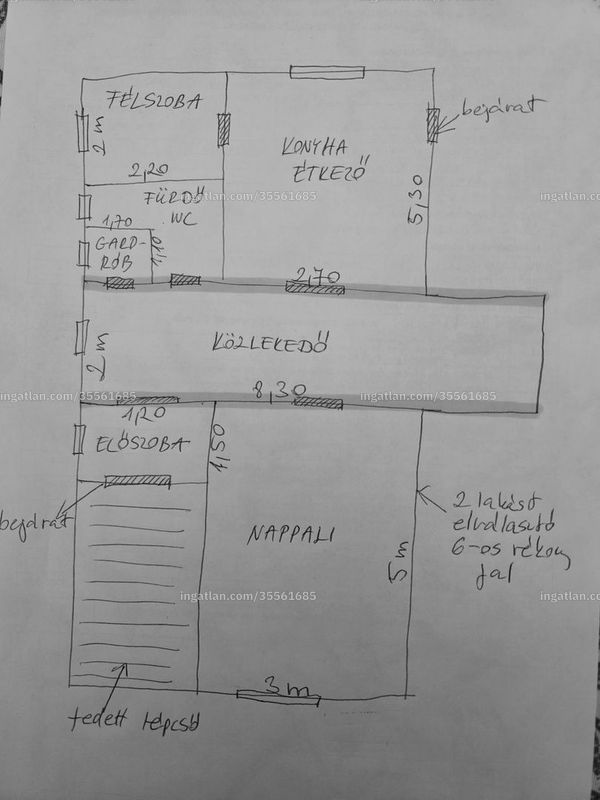 FÉLSZOBA
2 m
2,20
bejárat
KONYHA
ÉTKEZŐ
5,30
ingatlan.com/35561685
ingatlan.com/35561685
ingatlan.com/35561685
FÜRDŐ
WC
1,70
GARD-
RÓB
1,10
2,70
KÖZLEKEDŐ
2 m
8,30
ingatlan.com/35561685
ingatlan.com/35561685
1,20
ELŐSZOBA
1,50
bejárat
NAPPALI
5 m
2 lakást
elválasztó
6-os vékony
fal
ingatlan.com/35561685
ingatlan.com/35561685
ingatlan.com/35561685
3 m
fedett lépcső